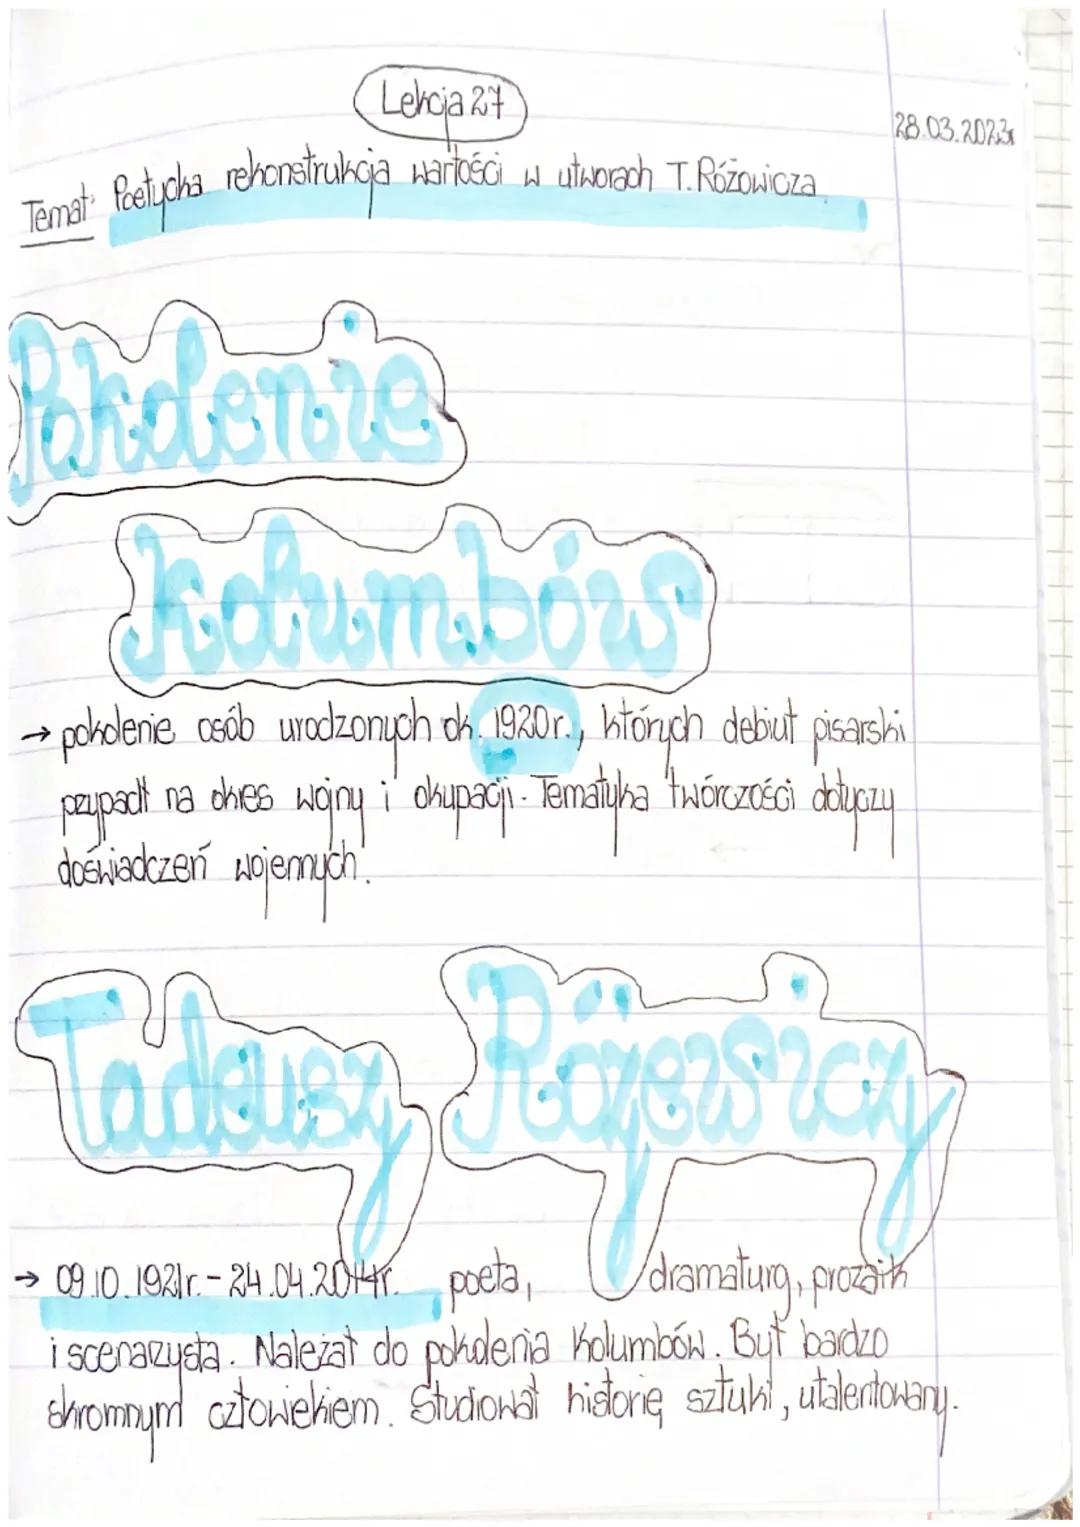 Lekcja 27
28.03.2023r
Temat: Poetycka rekonstrukcja wartości w utworach T.Różowicza.
Pokolenie
Kolumbów
→ pokolenie osób urodzonych ok. 1920r., których debiut pisarski
przypadł na okres wojny i okupacji. Tematyka twórczości dotyczy
doświadczeń wojennych.
Tadeusz Różewicz
→ 09.10.1921r. - 24.04.2014r. poeta, dramaturg, prozaik
i scenarzysta. Należał do pokolenia Kolumbów. Był bardzo
skromnym człowiekiem. Studiował historię sztuki, utalentowany.